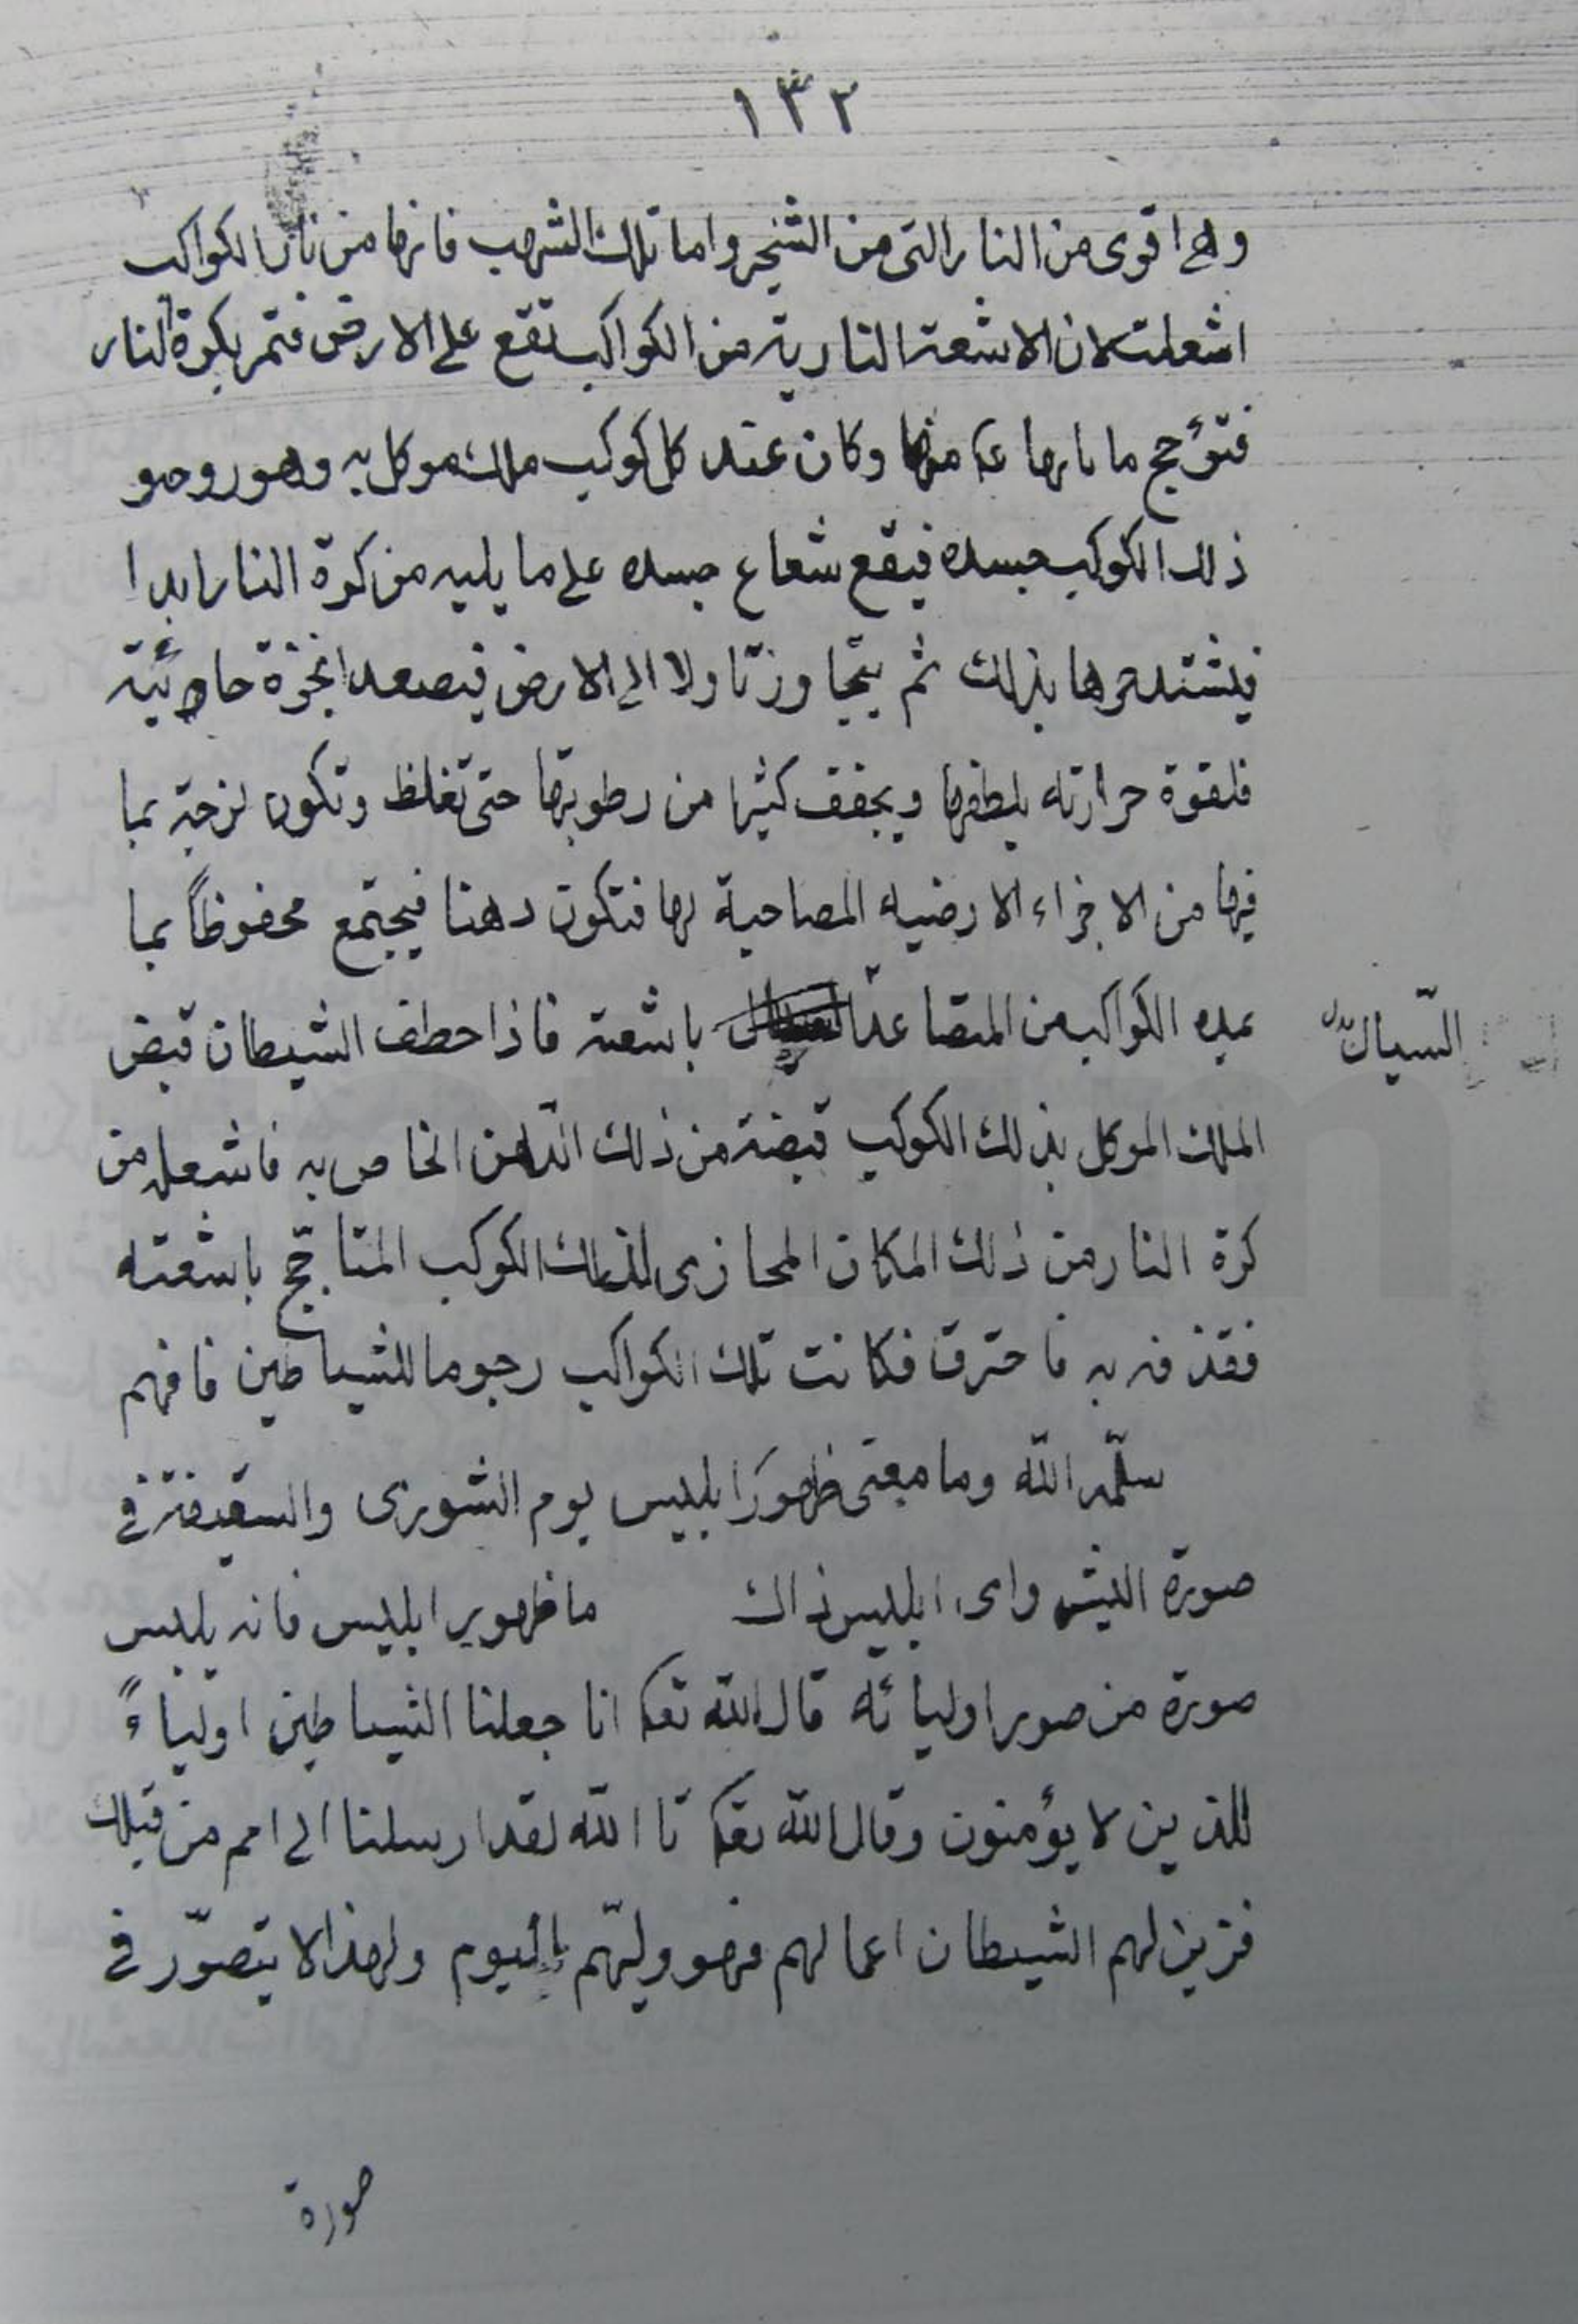 ١٣٢
وهى اقوى من النار التى من الشجر واما تلك الشهب فانها من نار الكواكب
اشعلت لان الاشعة النارية من الكواكب تقع على الارض فتمر بكرة النار
فتؤجج ما بها منها وكان عند كل كوكب ملك موكل به وهو روحو
ذلك الكوكب جسده فيقع شعاع جسده على ما يليه من كرة النار ابدا
فيشتد حرها بذلك ثم يتجاوز نازلا الى الارض فيصعد ابخرة
فلقوة حرارته يلطفها ويجفف كثيرا من رطوبتها حتى تغلظ وتكون لزجة بما
فيها من الاجزاء الارضيه المصاحبة لها فتكون دهنا فيجتمع محفوظاً بما
يمده الكواكب من المتصاعد باشعته فاذا خطف الشيطان قبض
السّيال
الملك الموكل بذلك الكوكب قبضة من ذلك الدّهن الخاص به فاشعله من
كرة النار من ذلك المكان المحازى لذلك الكوكب المتاجّج باشعته
فقذفه به فاحترق فكانت تلك الكواكب رجوما للشياطين فافهم
سلّمه اللّه وما معنى ظهور ابليس يوم الشورى والسقيفة فى
صورة البشر واى ابليس ذاك ما ظهور ابليس فانه يلبس
صورة من صور اوليائه قال اللّه تعا انا جعلنا الشياطين اولياءً
للذين لا يؤمنون وقال اللّه تعا تا اللّه لقد ارسلنا الى امم من قبلك
فزين لهم الشيطان اعمالهم فهو وليّهم اليوم ولهذا لا يتصوّر فى
صورة